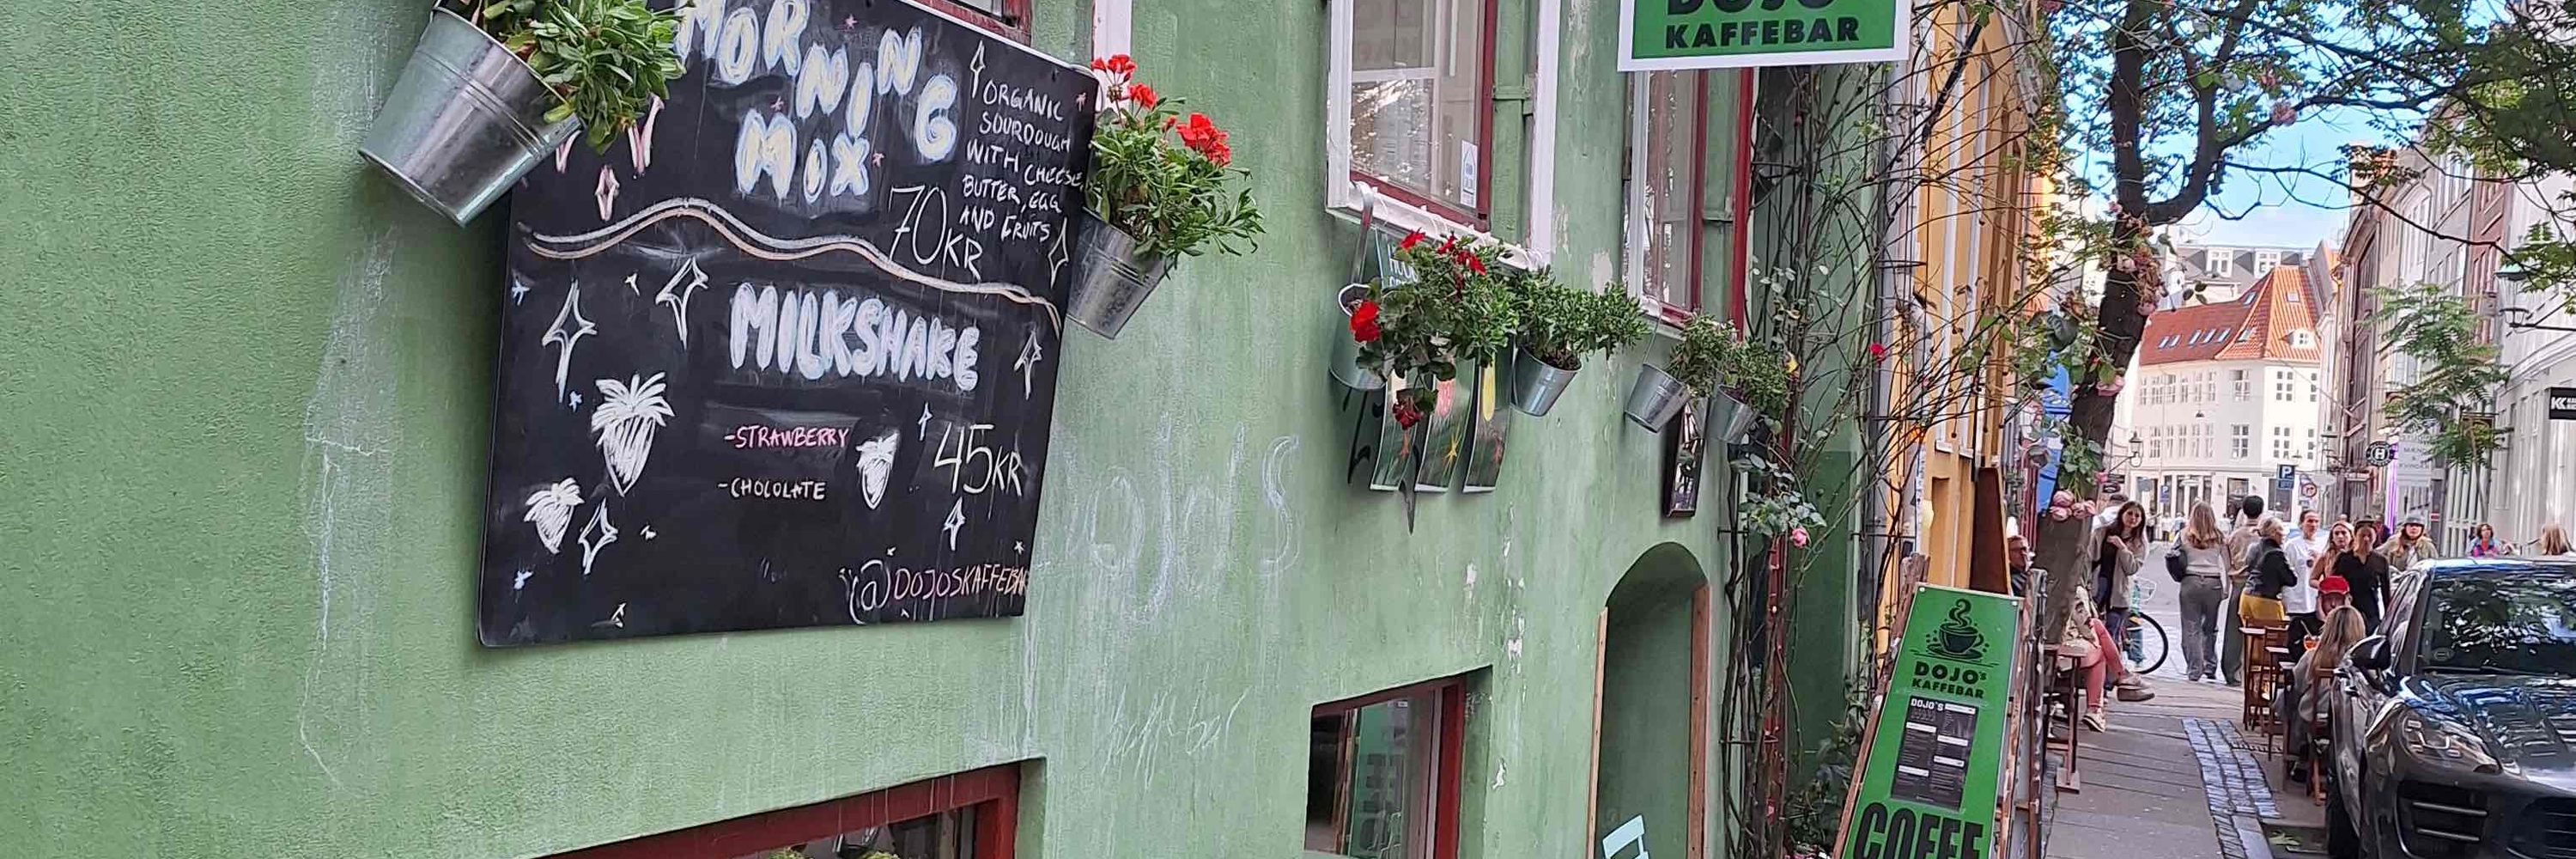 MORNING
MIX
ORGANIC
SOURDOUGH
WITH CHEESE,
BUTTER, EGG
AND FRUITS
70KR
MILKSHAKE
-STRAWBERRY
-CHOCOLATE
45KR
@DOJOSKAFFEBAR
DOJO'S
KAFFEBAR
DOJO'S
KAFFEBAR
DOJO'S
COFFE
P
H